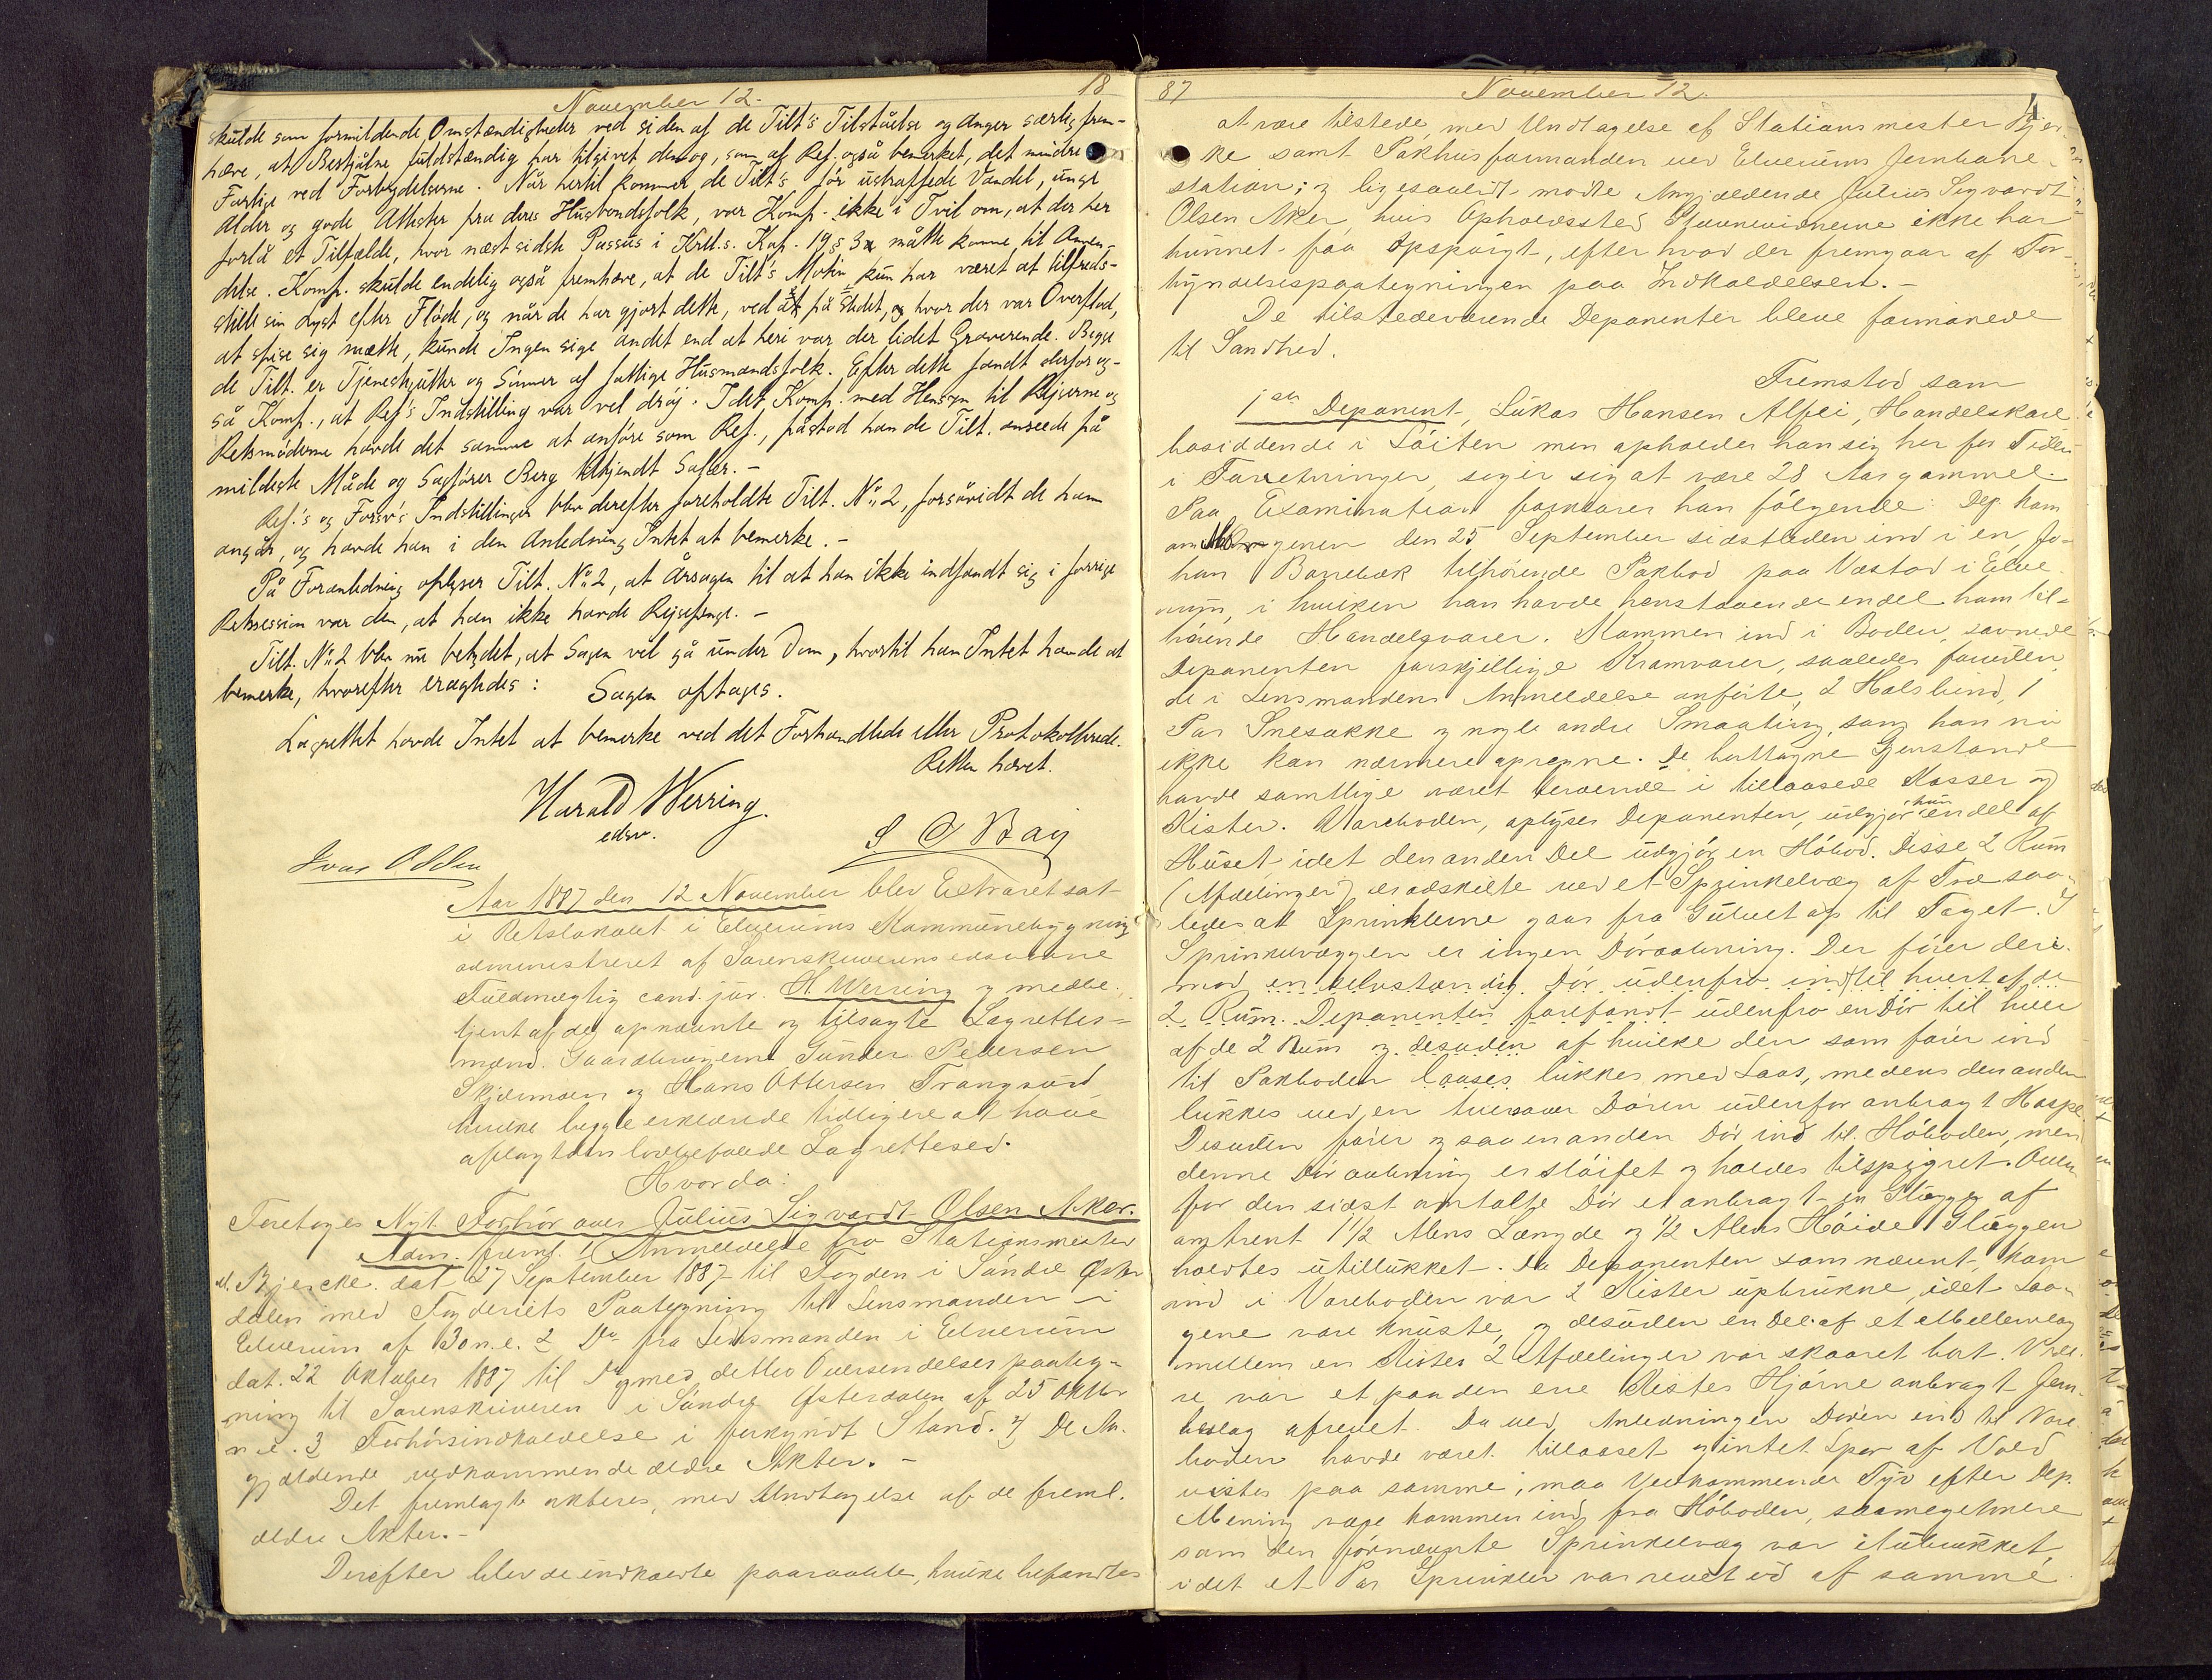 November 12.
18
skulde som formildende Omstændigheder ved siden af de Tilt's Tilståelse og Anger særlig frem-
hæve, at Bestjålne fuldstændig har tilgivet dem og, som af Ref. også bemerket, det mindre
Farlige ved Forbrydelserne. Når hertil kommer de Tilt's før ustraffede Vandel, unge
Alder og gode Attester fra deres Husbondsfolk, var Komp. ikke i Tvil om, at der her
forlå et Tilfælde, hvor næst sidste Passus i Krl.s. Kap. 19 § 3 måtte komme til Anven-
delse. Komp. skulde endelig også fremhæve, at de Tilt's Motiv kun har været at tilfreds-
stille sin Lyst efter Fløde, og når de har gjort dette, ved at på Stedet, og hvor der var Overflod,
at spise sig mætte, kunde Ingen sige andet end at heri var der lidet Graverende. Begge
de Tilt. er Tjenestgutter og Sønner af fattige Husmandsfolk. Efter dette fandt derfor og-
så Komp., at Ref's Indstilling var vel drøj. Idet Komp. med Hensyn til Rejserne og
Retsmøderne havde det samme at anføre som Ref., påstod han de Tilt. anseede på
mildeste Måde og Sagfører Berg tilkjendt Salær. -
Ref.'s og Forsv's Indstillinger blev derefter foreholdte Tilt. No 2, forsåvidt de ham
angår, og havde han i den Anledning Intet at bemerke. -
På Foranledning oplyser Tilt. No 2, at Årsagen til at han ikke indfandt sig i forrige
Retssession var den, at han ikke havde Rejsepenge. -
Tilt. No 2 blev nu betydet, at Sagen vil gå under Dom, hvortil han Intet havde at
bemerke, hvorefter eragtedes: Sagen optages.
Lagrettet havde Intet at bemerke ved det Forhandlede eller Protokollerede.
Retten hævet.
Harald Werring.
edsv.
Aar 1887 den 12 November blev Extraret sat
i Retslokalet i Elverums Kommunebygning
administreret af Sorenskriverens edsvorne
Fuldmægtig cand. jur. H. Werring og medbe-
tjent af de opnævnte og tilsagte Lagrettes-
mænd Gaardbrugerne Gunder Pedersen
Skjærmoen og Hans Ottersen Trangsrud
hvilke begge erklærede tidligere at have
aflagt den lovbefalede Lagrettesed.
Hvorda:
Foretoges Nyt Forhør over Julius Sigvardt Olsen Aker.
Adm. freml. 1) Anmeldelse fra Stationsmester
M. Bjercke dat 27 September 1887 til Fogden i Søndre Øster
dalen med Fogderiets Paategning til Lensmanden i
Elverum af 30 n.e. 2 Do fra Lensmanden i Elverum
dat. 22 Oktober 1887 til Do med dettes Oversendelses paateg-
ning til Sorenskriveren i Søndre Østerdalen af 25 Oktbr
n.e. 3 Forhørsindkaldelse i forkyndt Stand. 4) De An-
gjældende vedkommende ældre Akter. -
Det fremlagte akteres, med Undtagelse af de freml.
ældre Akter. -
Derefter blev de indkaldte paaraabte, hvilke befandtes
87
November 12.
at være tilstede, med Undtagelse af Stationsmester Bjer-
ke samt Pakhusformanden ved Elverums Jernbane-
station; og ligesaalidt mødte Angjældende Julius Sigvardt
Olsen Aker, hvis Opholdssted Stævnevidnerne ikke har
kunnet faa opspurgt, efter hvad der fremgaar af For-
kyndelsespaategningen paa Indkaldelsen. -
De tilstedeværende Deponenter bleve formanede
til Sandhed.
Fremstod som
1ste Deponent, Lukas Hansen Alfei, Handelskarl
bosiddende i Løiten men opholder han sig her for Tiden
i Forretninger, siger sig at være 28 Aar gammel.
Paa Examination forklarer han følgende: Dep. kom
om Morgenen den 25 September sidstleden ind i en Jo-
han Borrebæk tilhørende Pakbod paa Vestad i Elve-
rum, i hvilken han havde henstaaende endel ham til-
hørende Handelsvarer. Kommen ind i Boden, savnede
Deponenten forskjellige Kramvarer, saaledes foruden
de i Lensmandens Anmeldelse anførte, 2 Halsbind, 1
Par Snesokke og nogle andre Smaating, som han nu
ikke kan nærmere opregne. De borttagne Gjenstande
havde samtlige været beroende i tillaasede Kasser og
Kister. Vareboden, oplyser Deponenten, udgjør kun en del af
Huset, idet den anden Del udgjør en Høbod. Disse 2 Rum
(Afdelinger) er adskilte ved et Sprinkelvæg af Træ saa-
ledes at Sprinklerne gaar fra Gulvet op til Taget. I
Sprinkelvæggen er ingen Døraabning. Der fører deri-
mod en selvstændig Dør udenfra ind til hvert af de
2 Rum. Deponenten forefandt udenfra en Dør til hver
af de 2 Rum og desuden af hvilke den som fører ind
til Pakboden laases lukkes med Laas, medens den anden
lukkes ved en tversover Døren udenfor anbragt Haspe
Desuden fører ogsaa en anden Dør ind til Høboden, men
denne Døraabning er sløifet og holdes tilspigret. Oven-
for den sidst omtalte Dør er anbragt en Glugge af
omtrent 1 1/2 Alens Længde og 1/2 Alens Høide. Gluggen
holdtes utillukket. Da Deponenten som nævnt, kom
ind i Vareboden var 2 Kister opbrukne, idet Laa-
gene vare knuste, og desuden en Del af et Mellemlag
mellem en Kistes 2 Afdelinger var skaaret bort. Vide-
re var et paa den ene Kistes Hjørne anbragt Jern-
beslag afrevet. Da ved Anledningen Døren ind til Vare-
boden havde været tillaaset og intet Spor af Vold
vistes paa samme, maa Vedkommende Tyv efter Dep.
Mening være kommen ind fra Høboden, saameget mere
som den førnævnte Sprinkelvæg var itubrukket,
idet et Par Sprinkler var revet ud af samme